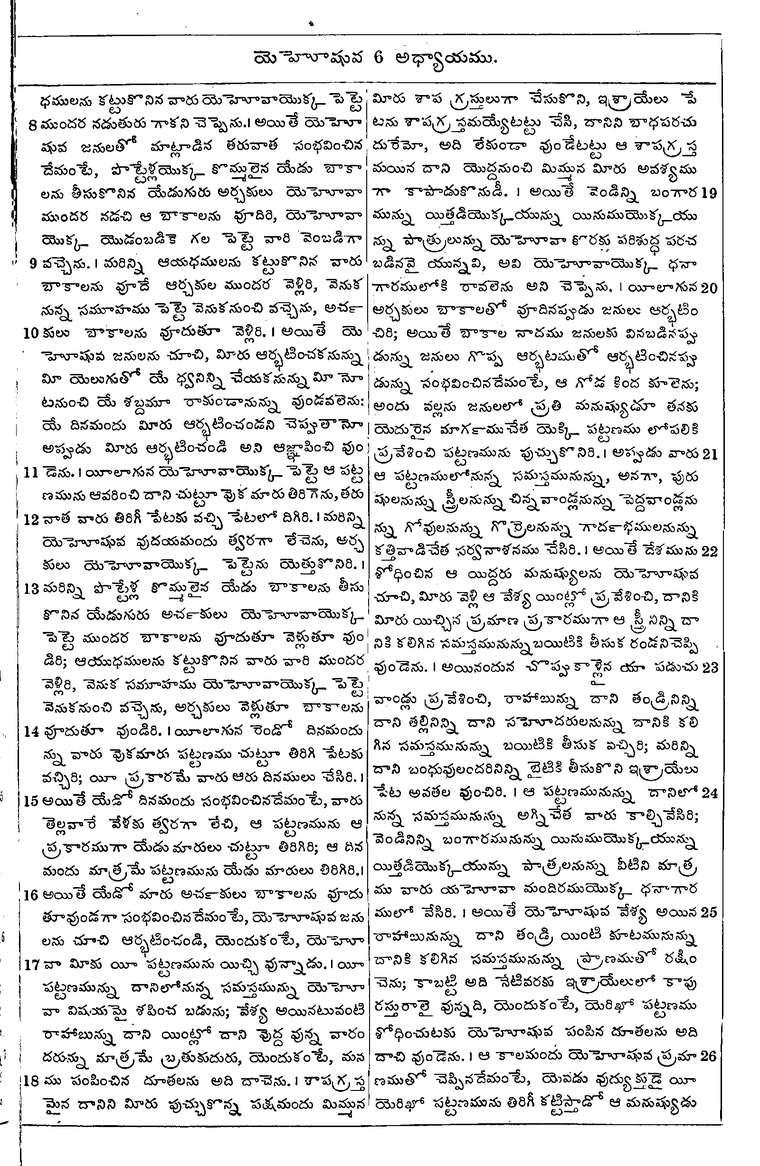 యెహోషువ 6 అధ్యాయము.
ధములను కట్టుకొనిన వారు యెహోవాయొక్క పెట్టె
8 ముందర నడుతురు గాకని చెప్పెను. । అయితే యెహో
షువ జనులతో మాట్లాడిన తరువాత సంభవించిన
దేమంటే, పొట్టేళ్లయొక్క కొమ్ములైన యేడు బాకా
లను తీసుకొనిన యేడుగురు అర్చకులు యెహోవా
ముందర నడచి ఆ బాకాలను వూదిరి, యెహోవా
యొక్క యొడంబడికె గల పెట్టె వారి వెంబడిగా
9 వచ్చెను. । మరిన్ని ఆయధములను కట్టుకొనిన వారు
బాకాలను వూదే ఆర్చకుల ముందర వెళ్లిరి, వెనుక
నున్న సమూహము పెట్టె వెనుకనుంచి వచ్చెను, అర్చ
10 కులు బాకాలను వూదుతూ వెళ్లిరి. । అయితే యె
హోషువ జనులను చూచి, మీరు ఆర్భటించకనున్ను
మీ యెలుగుతో యే ధ్వనిన్ని చేయకనున్ను మీ నో
టనుంచి యే శబ్దమూ రాకుండానున్ను వుండవలెను:
యే దినమందు మీరు ఆర్భటించండని చెప్పుతానో
అప్పుడు మీరు ఆర్భటించండి అని ఆజ్ఞాపించి వుం
11 డెను. । యీలాగున యెహోవాయొక్క పెట్టె ఆ పట్ట
ణమును ఆవరించి దాని చుట్టూ వుక మారు తిరిగెను, తరు
12 వాత వారు తిరిగీ పేటకు వచ్చి పేటలో దిగిరి. । మరిన్ని
యెహోషువ వుదయమందు త్వరగా తేచెను, అర్చ
కులు యెహోవాయొక్క పెట్టెను యెత్తుకొనిరి. ।
13 మరిన్ని పొట్టేళ్ల కొమ్ములైన యేడు బాకాలను తీసు
కొనిన యేడుగురు అర్చకులు యెహోవాయొక్క
పెట్టె ముందర బాకాలను వూదుతూ వెళ్లుతూ వుం
డిరి; ఆయుధములను కట్టుకొనిన వారు వారి ముందర
వెళ్లిరి, వెనుక సమూహము యెహోవాయొక్క పెట్టె
వెనుకనుంచి వచ్చెను, అర్చకులు వెళ్లుతూ బాకాలను
14 వూదుతూ వుండిరి. । యీలాగున రెండో దినమందు
న్ను వారు వుకమారు పట్టణము చుట్టూ తిరిగి పేటకు
వచ్చిరి; యీ ప్రకారమే వారు ఆరు దినములు చేసిరి. ।
15 అయితే యేడో దినమందు సంభవించినదేమంటే, వారు
తెల్లవారే వేళకు త్వరగా లేచి, ఆ పట్టణమును ఆ
ప్రకారముగా యేడు మారులు చుట్టూ తిరిగిరి; ఆ దిన
మందు మాత్రమే పట్టణమును యేడు మారులు తిరిగిరి. ।
16 అయితే యేడో మారు అర్చకులు బాకాలను వూదు
తూవుండగా సంభవించినదేమంటే, యెహోషువ జను
లను చూచి ఆర్భటించండి, యెందుకంటే, యెహో
17 వా మీకు యీ పట్టణమును యిచ్చి వున్నాడు. । యీ
పట్టణమున్ను దానిలోనున్న సమస్తమున్ను యెహో
వా విషయమై శపించ బడును; వేశ్య అయినటువంటి
రాహాబున్ను దాని యింట్లో దాని వుద్ద వున్న వారం
దరున్ను మాత్రమే బ్రతుకుదురు, యెందుకంటే, మన
18 ము పంపించిన దూతలను అది దాచెను. । శాపగ్రస్త
మైన దానిని మీరు పుచ్చుకొన్న పక్షమందు మిమ్మున
మీరు శాప గ్రస్తులుగా చేసుకొని, ఇశ్రాయేలు పే
టను శాపగ్రస్తమయ్యేటట్టు చేసి, దానిని బాధపరచు
దురేమో, అది లేకుండా వుండేటట్టు ఆ శాపగ్రస్త
మయిన దాని యొద్దనుంచి మిమ్మున మీరు అవశ్యము
గా కాపాడుకొనుడీ. । అయితే వెండిన్ని బంగార 19
మున్ను యిత్తడియొక్కయున్ను యినుముయొక్కయు
న్ను పాత్రలున్ను యెహోవా కొరకు పరిశుద్ధ పరచ
బడినవై యున్నవి, అవి యెహోవాయొక్క ధనా
గారములోకి రావలెను అని చెప్పెను. । యీలాగున 20
అర్చకులు బాకాలతో వూదినప్పుడు జనులు ఆర్భటిం
చిరి; అయితే బాకాల నాదము జనులకు వినబడినప్పు
డున్ను జనులు గొప్ప ఆర్భటముతో ఆర్భటించినప్పు
డున్ను సంభవించినదేమంటే, ఆ గోడ కింద కూలెను;
అందు వల్లను జనులలో ప్రతి మనుష్యుడూ తనకు
యెదురైన మార్గముచేత యెక్కి పట్టణము లోపలికి
ప్రవేశించి పట్టణమును పుచ్చుకొనిరి. । అప్పుడు వారు 21
ఆ పట్టణములోనున్న సమస్తమునున్ను, అనగా, పురు
షులనున్ను స్త్రీలనున్ను చిన్నవాండ్లనున్ను పెద్దవాండ్లను
న్ను గోవులనున్ను గొర్రెలనున్ను గార్దభములనున్ను
కత్తివాడిచేత సర్వనాశనము చేసిరి. । అయితే దేశమును 22
శోధించిన ఆ యిద్దరు మనుష్యులను యెహోషువ
చూచి, మీరు వెళ్లి ఆ వేశ్య యింట్లో ప్రవేశించి, దానికి
మీరు యిచ్చిన ప్రమాణ ప్రకారముగా ఆ స్త్రీనిన్ని దా
నికి కలిగిన సమస్తమునున్ను బయిటికి తీసుక రండని చెప్పి
వుండెను. । అయినందున చొప్పు కాళ్లైన యా పడుచు 23
వాండ్లు ప్రవేశించి, రాహాబున్ను దాని తండ్రినిన్ని
దాని తల్లినిన్ని దాని సహోదరులనున్ను దానికి కలి
గిన సమస్తమునున్ను బయిటికి తీసుక వచ్చిరి; మరిన్ని
దాని బంధువులందరినిన్ని బైటికి తీసుకొని ఇశ్రాయేలు
పేట అవతల వుంచిరి. । ఆ పట్టణమునున్ను దానిలో 24
నున్న సమస్తమునున్ను అగ్నిచేత వారు కాల్చివేసిరి;
వెండినిన్ని బంగారమునున్ను యినుముయొక్కయున్ను
యిత్తడియొక్కయున్ను పాత్రలనున్ను వీటిని మాత్ర
ము వారు యహోవా మందిరముయొక్క ధనాగార
ములో వేసిరి. । అయితే యెహోషువ వేశ్య అయిన 25
రాహాబునున్ను దాని తండ్రి యింటి కూటమునున్ను
దానికి కలిగిన సమస్తమునున్ను ప్రాణముతో రక్షిం
చెను; కాబట్టి అది నేటివరకు ఇశ్రాయేలులో కాపు
రస్తురాలై వున్నది, యెందుకంటే, యెరిఖో పట్టణము
శోధించుటకు యెహోషువ పంపిన దూతలను అది
దాచి వుండెను. । ఆ కాలమందు యెహోషువ ప్రమా 26
ణముతో చెప్పినదేమంటే, యెవడు వుద్యుక్తుడై యీ
యెరిఖో పట్టణమును తిరిగీ కట్టిస్తాడో ఆ మనుష్యుడు